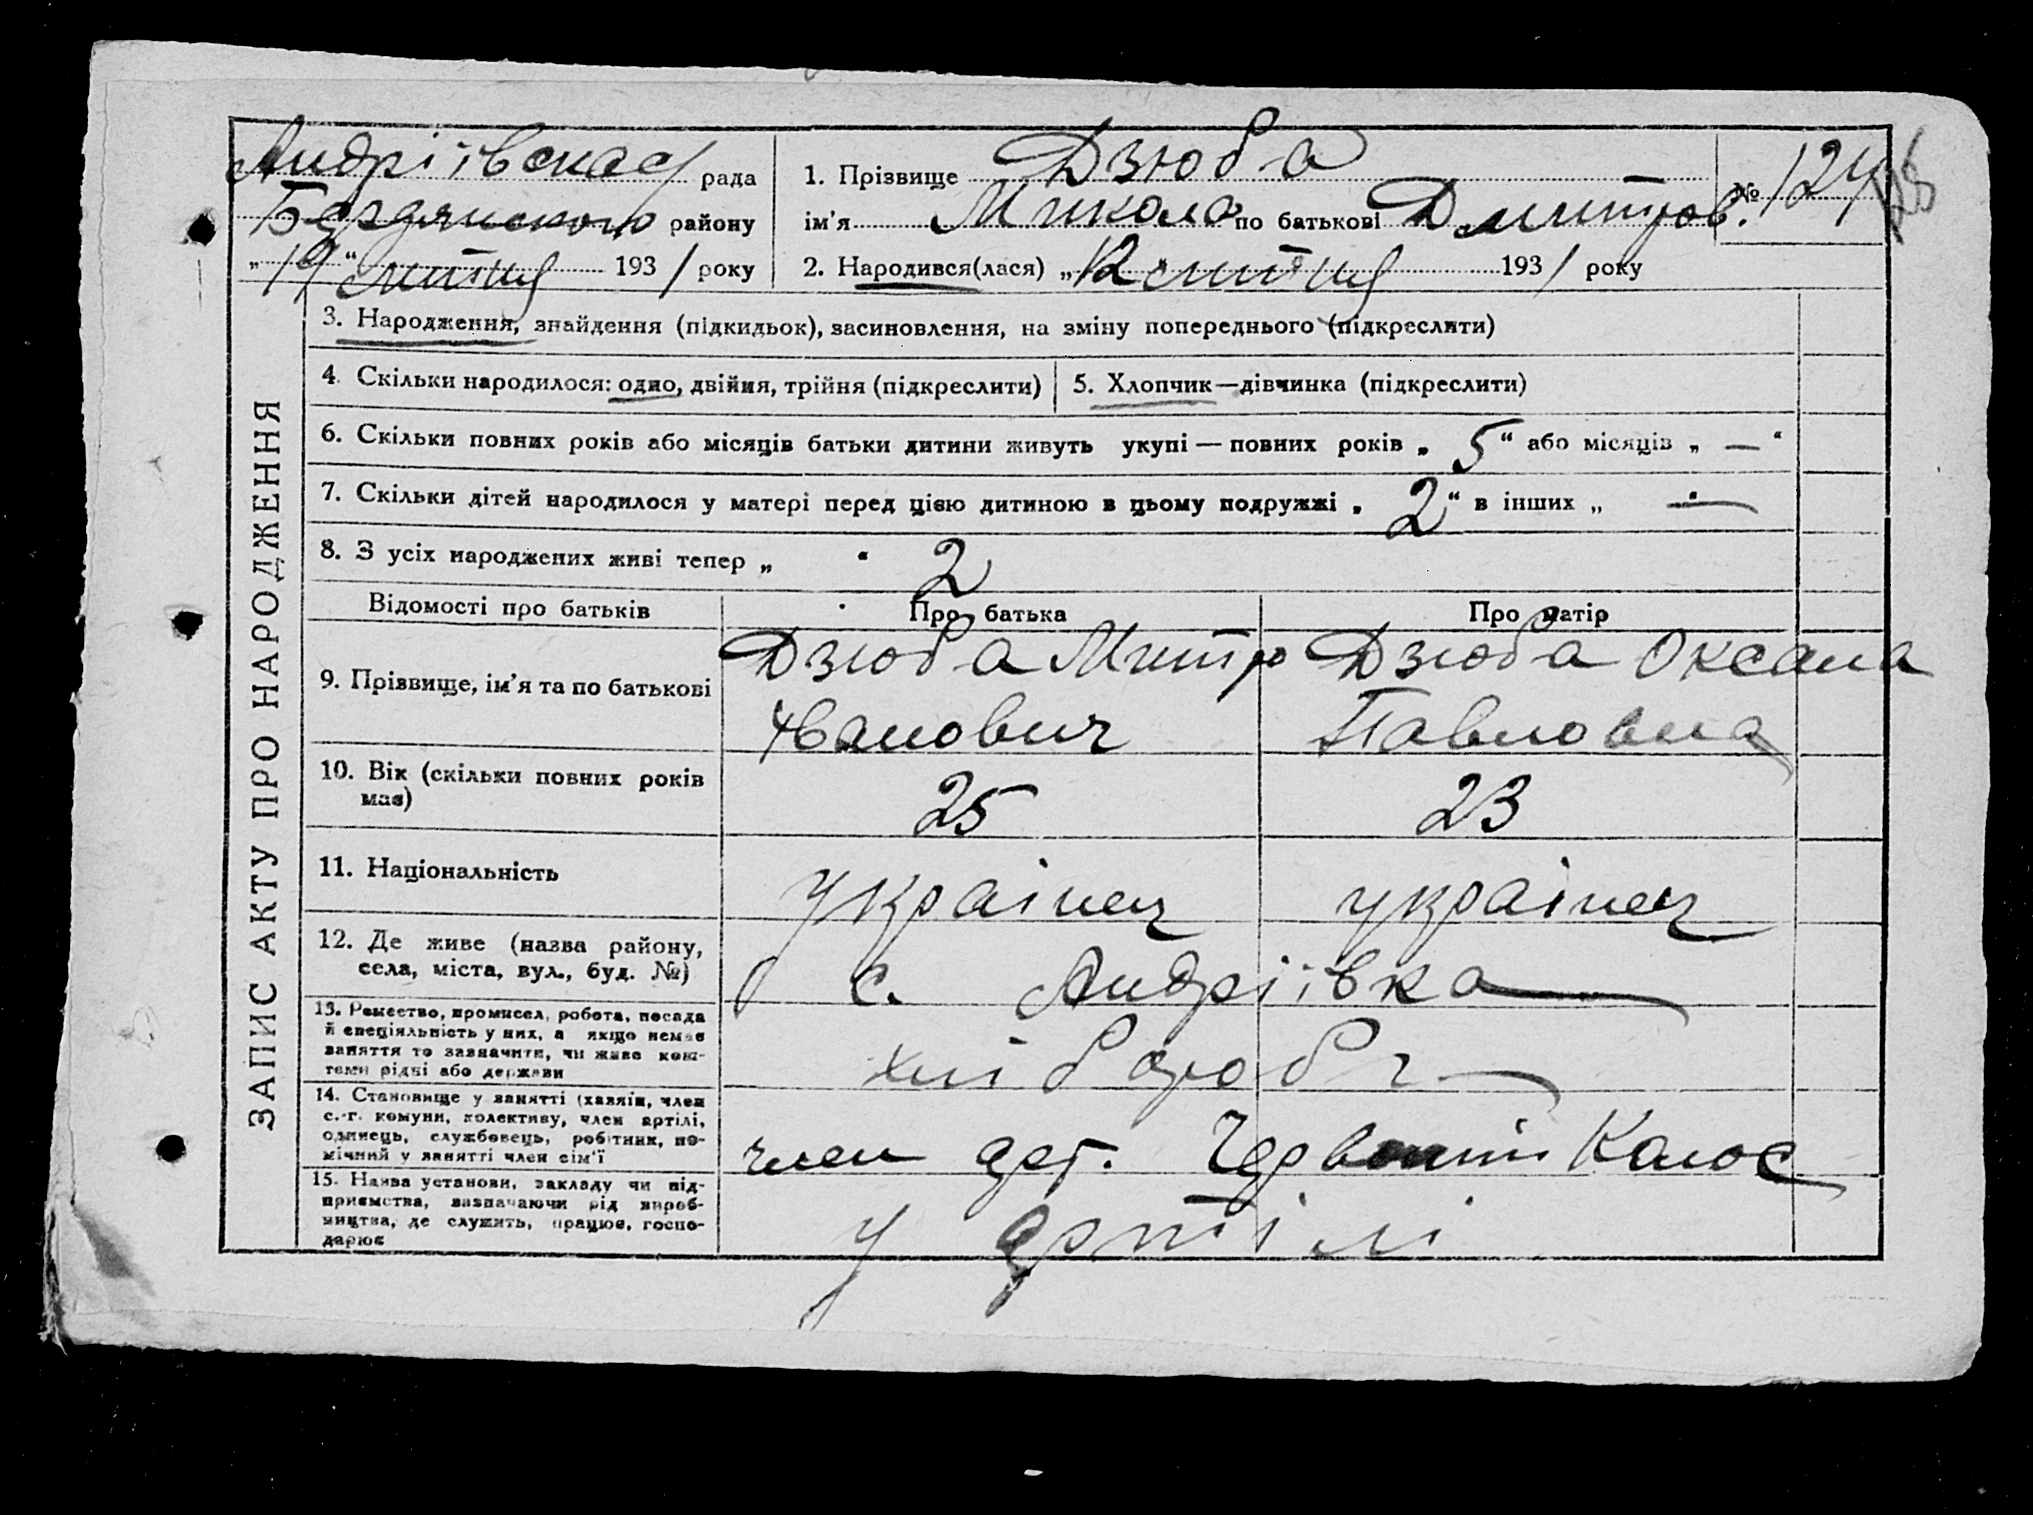 Андріївська рада
Бердянського району
„19“ липня 1931 року
1. Прізвище Дзюба
ім’я Микола по батькові Дмитров.
№ 124
2. Народився(лася) „12“ липня 1931 року
ЗАПИС АКТУ ПРО НАРОДЖЕННЯ
3. Народження, знайдення (підкидьок), засиновлення, на зміну попереднього (підкреслити)
4. Скільки народилося: одно, двійня, трійня (підкреслити)
5. Хлопчик—дівчинка (підкреслити)
6. Скільки повних років або місяців батьки дитини живуть укупі — повних років „5“ або місяців „—“
7. Скільки дітей народилося у матері перед цією дитиною в цьому подружжі „2“ в інших „—“
8. З усіх народжених живі тепер „ “ 2
Відомості про батьків Про батька Про матір
9. Прізвище, ім’я та по батькові
Дзюба Митро
Іванович
Дзюба Оксана
Павловна
10. Вік (скільки повних років
має)
25 23
11. Національність українец українец
12. Де живе (назва району,
села, міста, вул., буд. №)
с. Андріївка
13. Ремество, промисел, робота, посада
й спеціяльність у них, а якщо немає
заняття то зазначити, чи живе кош-
тами рідні або держави
хлібороб
14. Становище у занятті (хазяїн, член
с.-г. комуни, колективу, член артілі,
одинець, службовець, робітник, по-
мічний у занятті член сім’ї
член арт. Червоний Колос
15. Назва установи, закладу чи під-
приємства, зазначаючи рід вироб-
ництва, де служить, працює, госпо-
дарює
у артілі